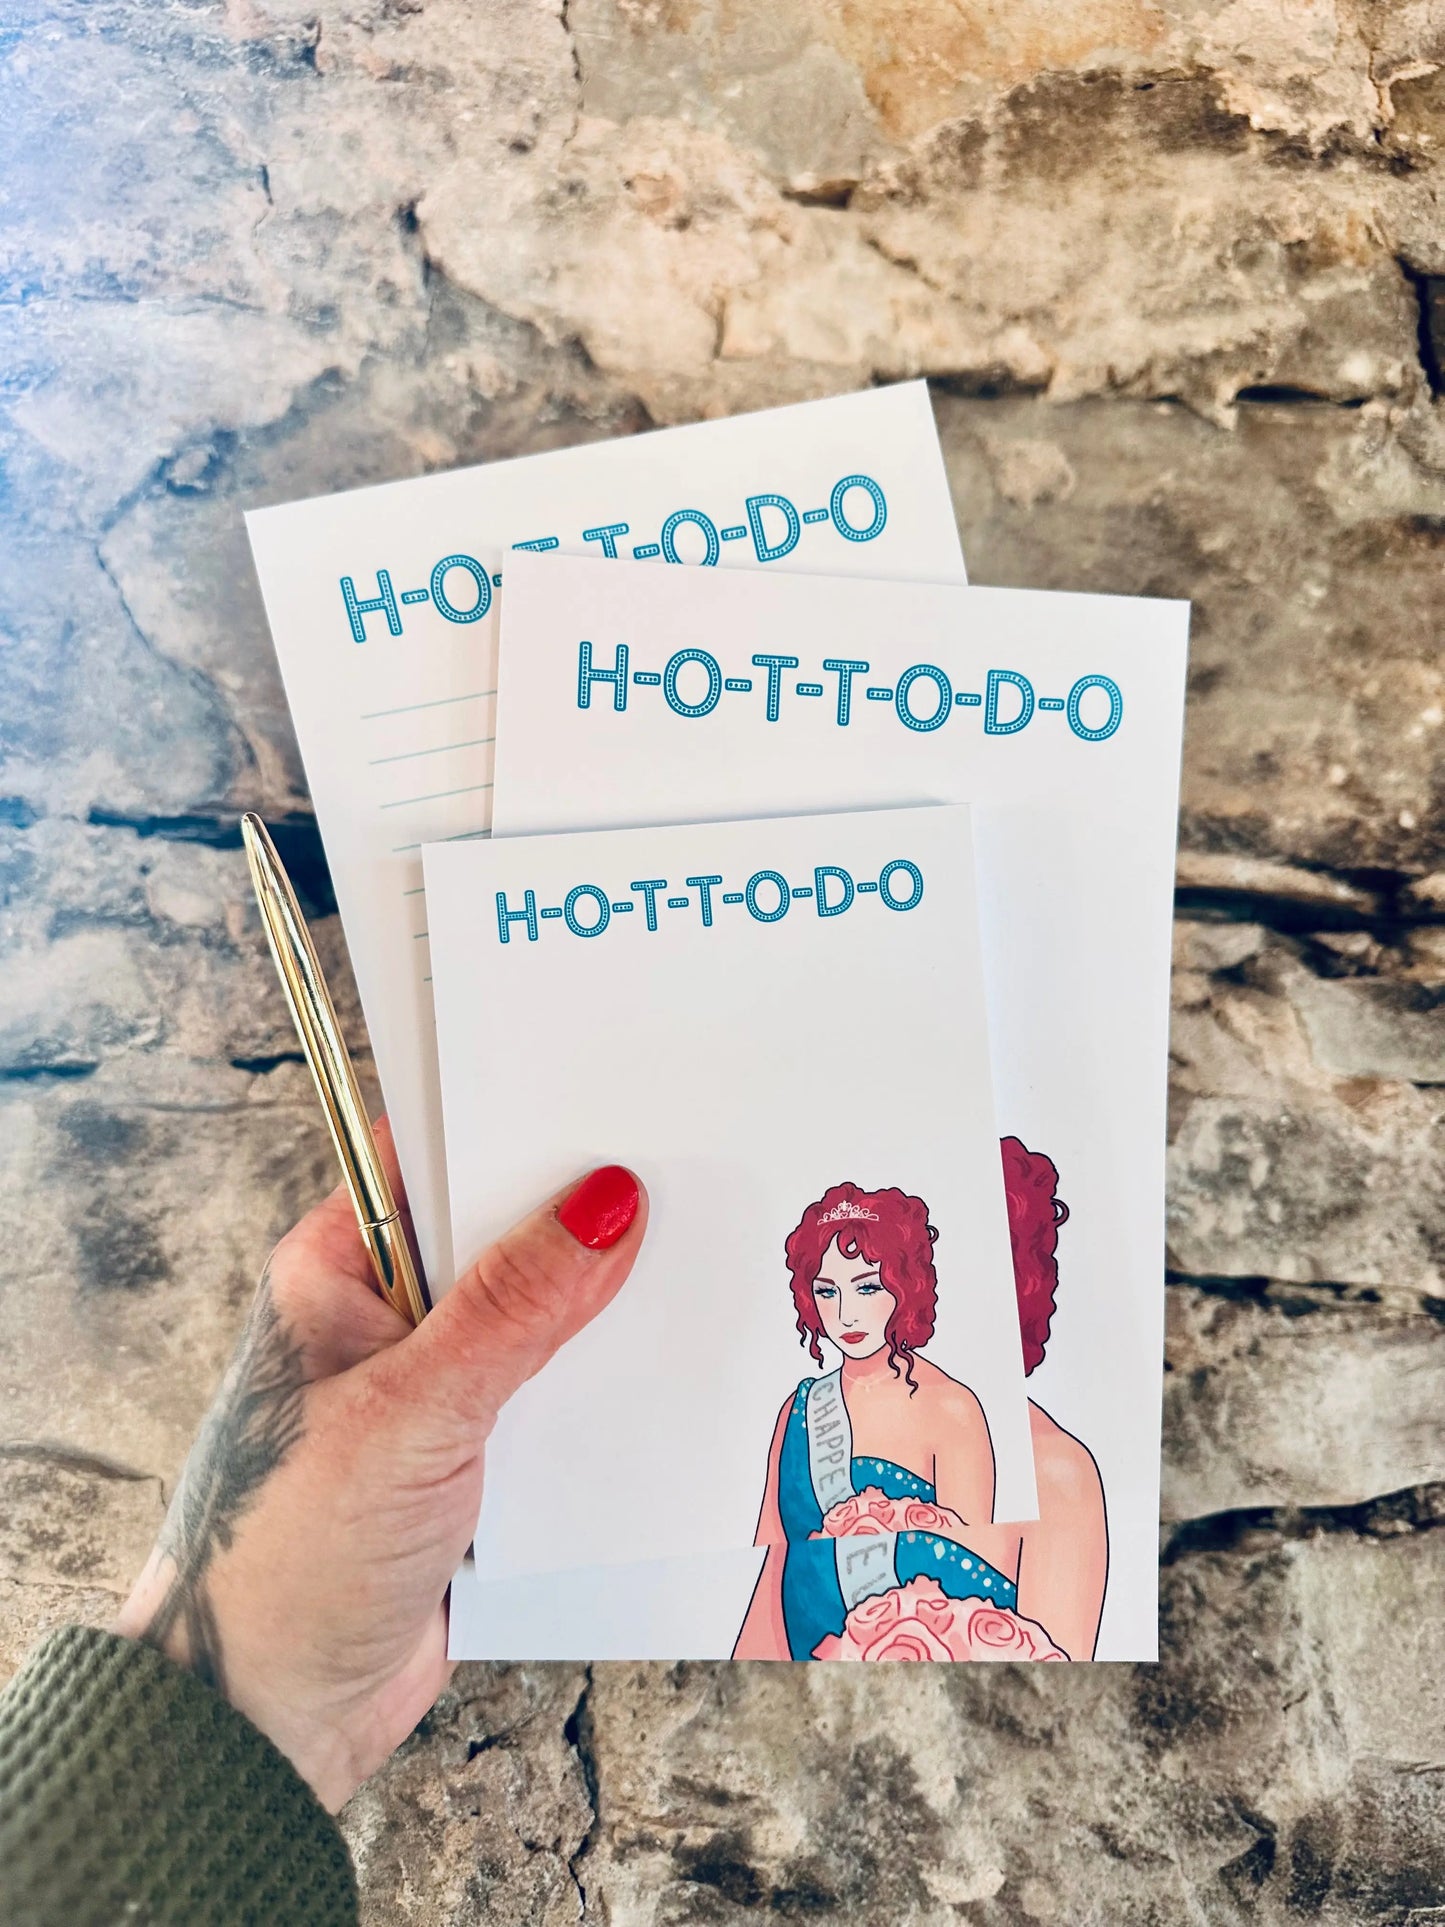 H-O-T-T-O-D-O
H-O-T-T-O-D-O
H-O-T-T-O-D-O
CHAPPE
E